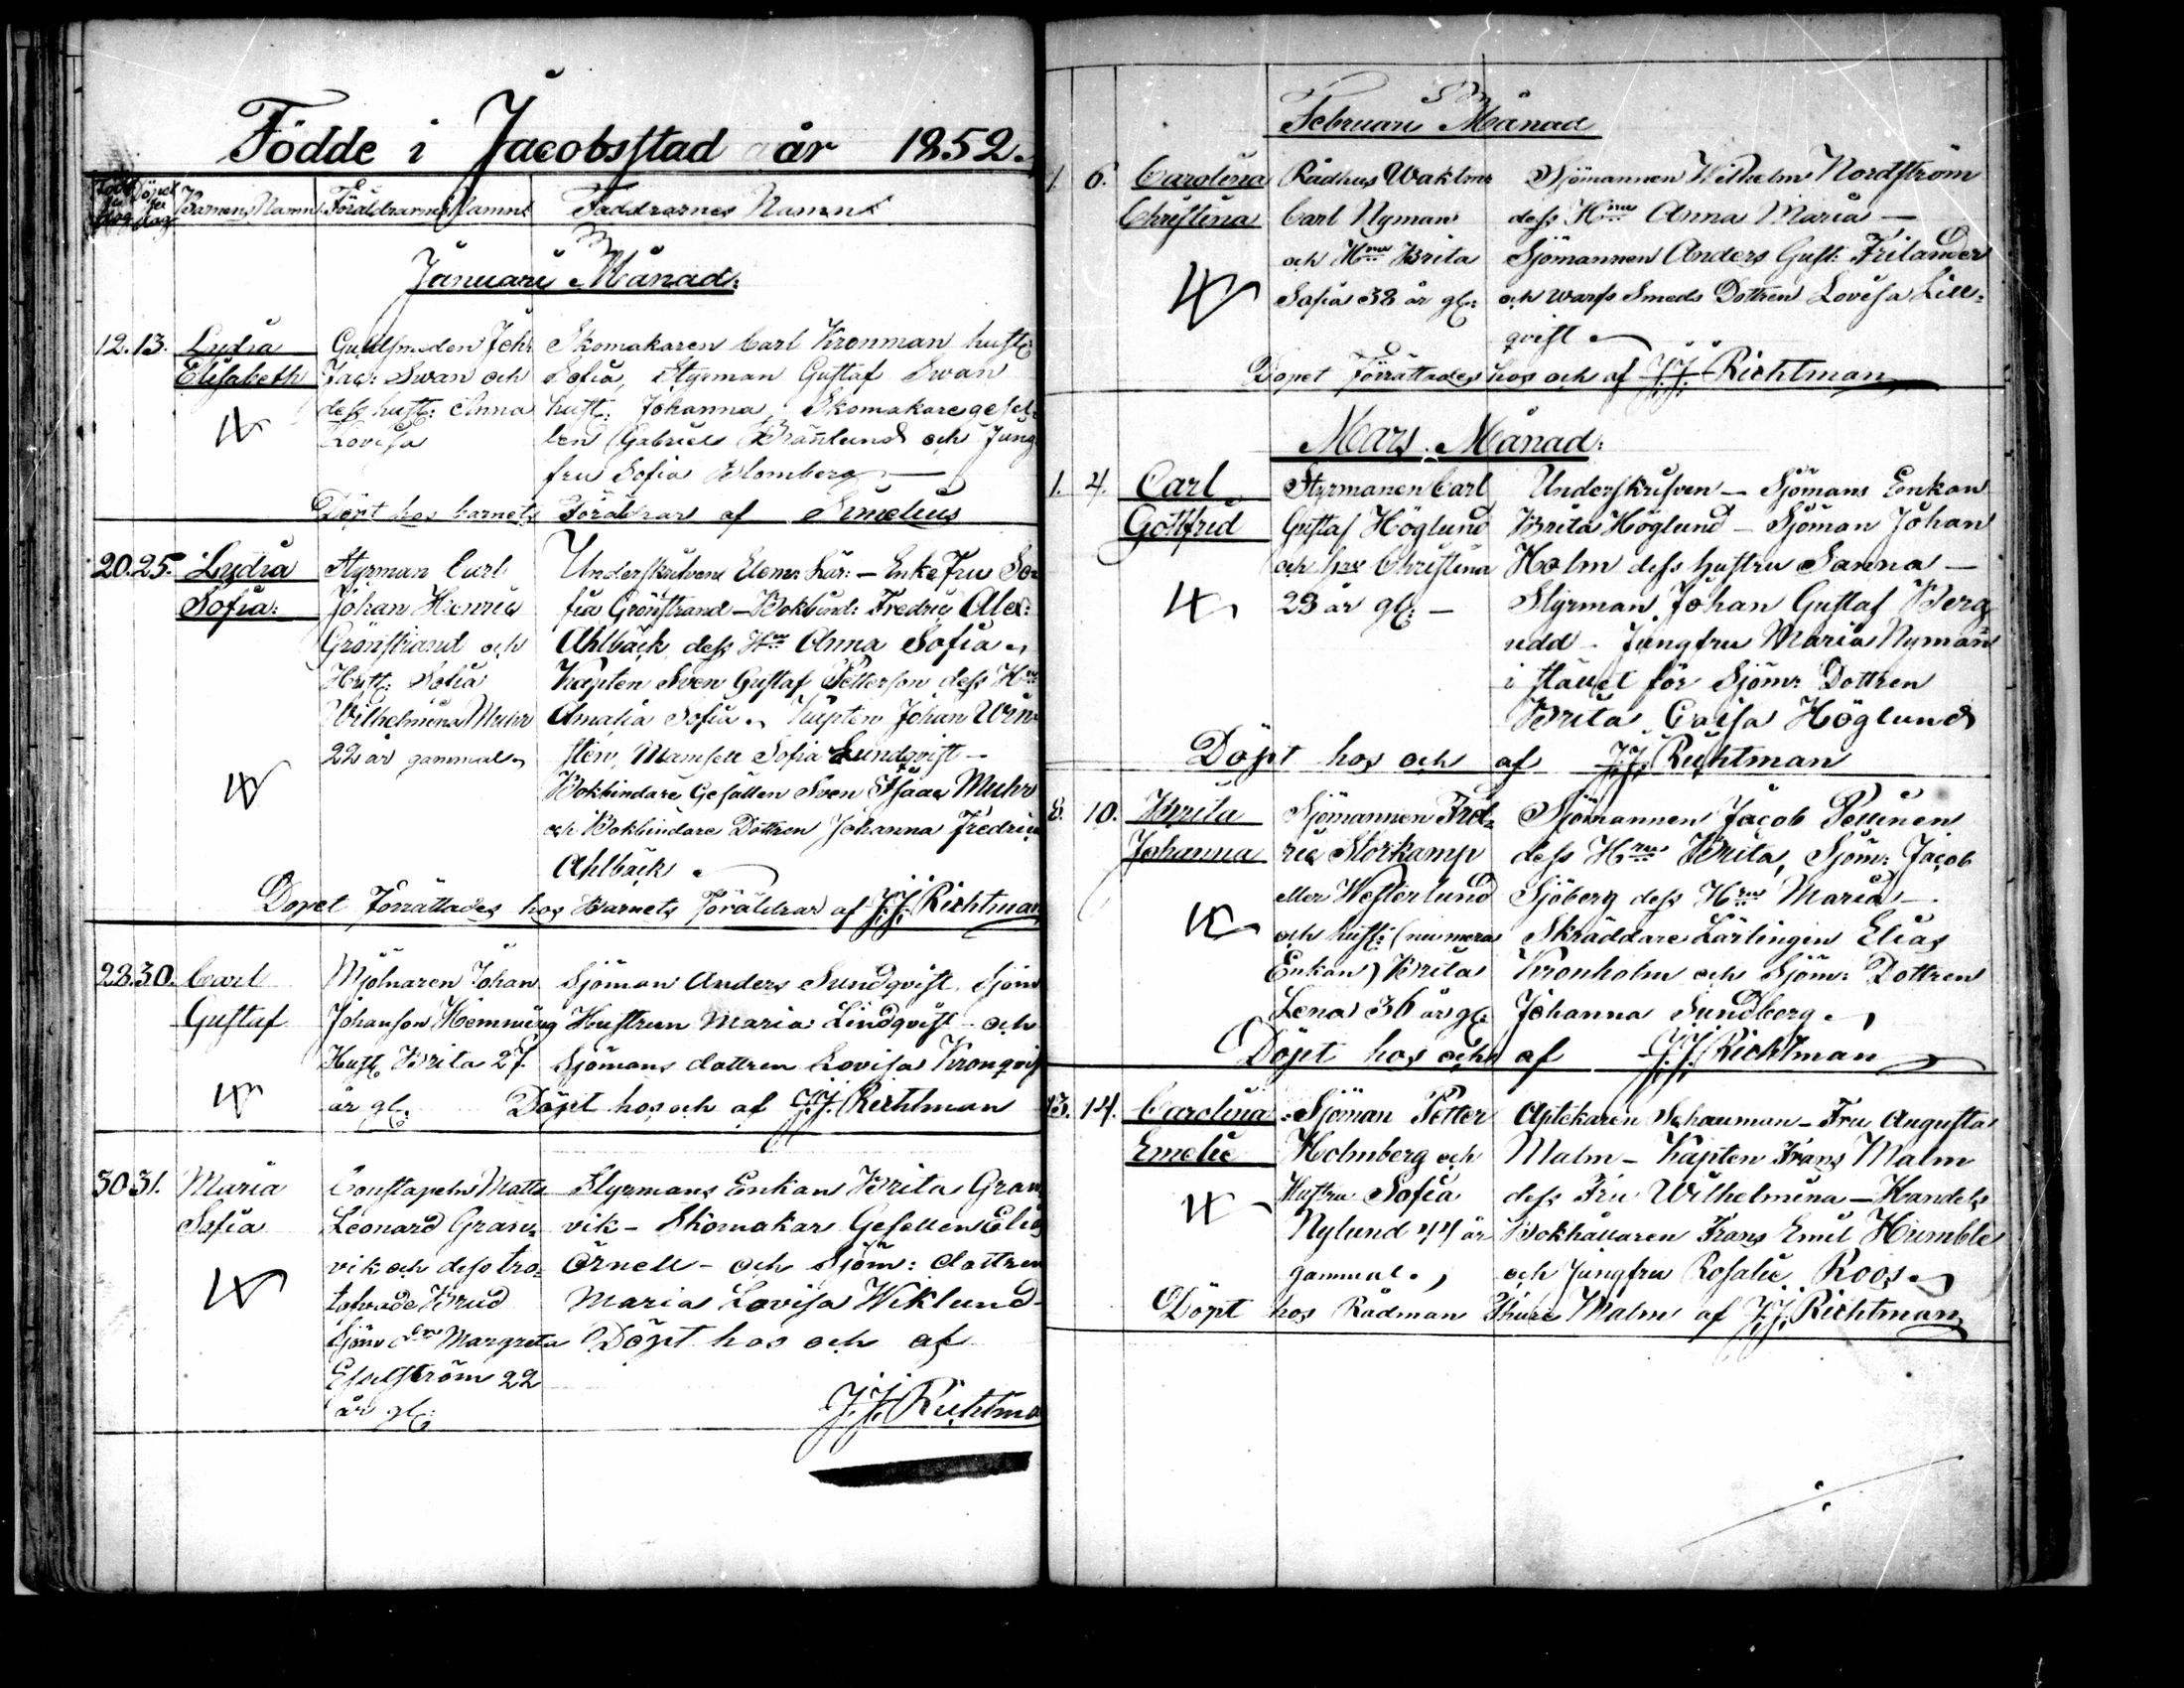 Födde i Jacobsstad år 1852.
Född den dag Döpt den dag Barnens Namn Föräldrarnes Namn Faddrarnes Namn
Januari Månad:
12. 13. Lydia Guldsmeden Joh: Skomakaren Carl Kronman hust:
Elisabeth Jac: Swan och Sofia, Styrman Gustaf Swan
dess hust: Anna hust: Johanna, Skomakaregesel-
Lovisa len Gabriel Brännlund och Jung
fru Sofia Blomberg —
Döpt hos barnets Föräldrar af Simelius
20. 25. Lydia Styrman Carl Underskrifven Elem: Lär: — Enke Fru So-
Sofia: Johan Henric fia Grönstrand — Bokbind: Fredric Alex:
Grönstrand och Ahlbäck dess Hru Anna Sofia
Hust: Sofia Kapten Sven Gustaf Petterson dess Hru
Wilhelmina Muhr Amalia Sofia Kapten Johan
22 år gammal sten, Mamsell Sofia Sundqvist —
Bokbindare Gesällen Sven Isaac Muhr
och Bokbindare Dottren Johanna Fredrica
Ahlbäck
Dopet Förrättades hos Barnets Föräldrar af J.J. Richtman
28. 30. Carl Mjölnaren Johan Sjöman Anders Sundqvist, Sjöm
Gustaf Johanson Hemming Hustrun Maria Lindqvist — och
Hust: Brita 27 Sjömans dottren Lovisa Kronqvis
år gl: Döpt hos och af J.J. Richtman
30 31. Maria Constapeln Matts Styrmans Enkan Brita Gran
Sofia Leonard Granvik — Skomakare Gesellen Elias
vik och dess tro- Örnell — och Sjöm: dottren
lofvade Brud Maria Lovisa Wiklund
Sjöm Dr Margreta Döpt hos och af
22
år gl: J.J. Richtma
Februari Månad
1. 6. Carolina Rådhus Waktm: Sjömannen Wilhelm Nordström
Christina Carl Nyman dess Hru Anna Maria —
och Hru Brita Sjömannen Anders Gust: Frilander
Sofia 38 år gl: och warfs Smeds Dottren Lovisa Lill-
qvist
Dopet Förrättades hos och af J.J. Richtman
Mars Månad:
1. 4. Carl Styrmanen Carl Underskrifven — Sjömans Enkan
Gottfrid Gustaf Höglund Brita Höglund — Sjöman Johan
och hru Christina Holm dess hustru Sanna —
23 år gl: — Styrman Johan Gustaf Berg
udd — Jungfru Maria Nyman
i stället för Sjöm: Dottren
Brita Caisa Höglund
Döpt hos och af J.J. Richtman
8. 10. Brita Sjömannen Fred- Sjömannen Jacob Pellinen
Johanna ric Storkamp dess Hru Brita, Sjöm: Jacob
eller Westerlund Sjöberg dess Hru Maria —
och hust: (numera Skräddare Lärlingen Elias
Enkan) Brita Kronholm och Sjöm: Dottren
Lena 36 år gl: Johanna Sundberg
Döpt hos och af J.J. Richtman
13. 14. Carolina Sjöman Petter Aptekaren Schauman — Fru Augusta
Emelie Holmberg och Malm — Kapten Frans Malm
Hustru Sofia dess Fru Wilhelmina — Handels
Nylund 44 år Bokhållaren Frans Emil Humble
gammal och Jungfru Rosalie Roos
Döpt hos Rådman Thure Malm af J.J. Richtman